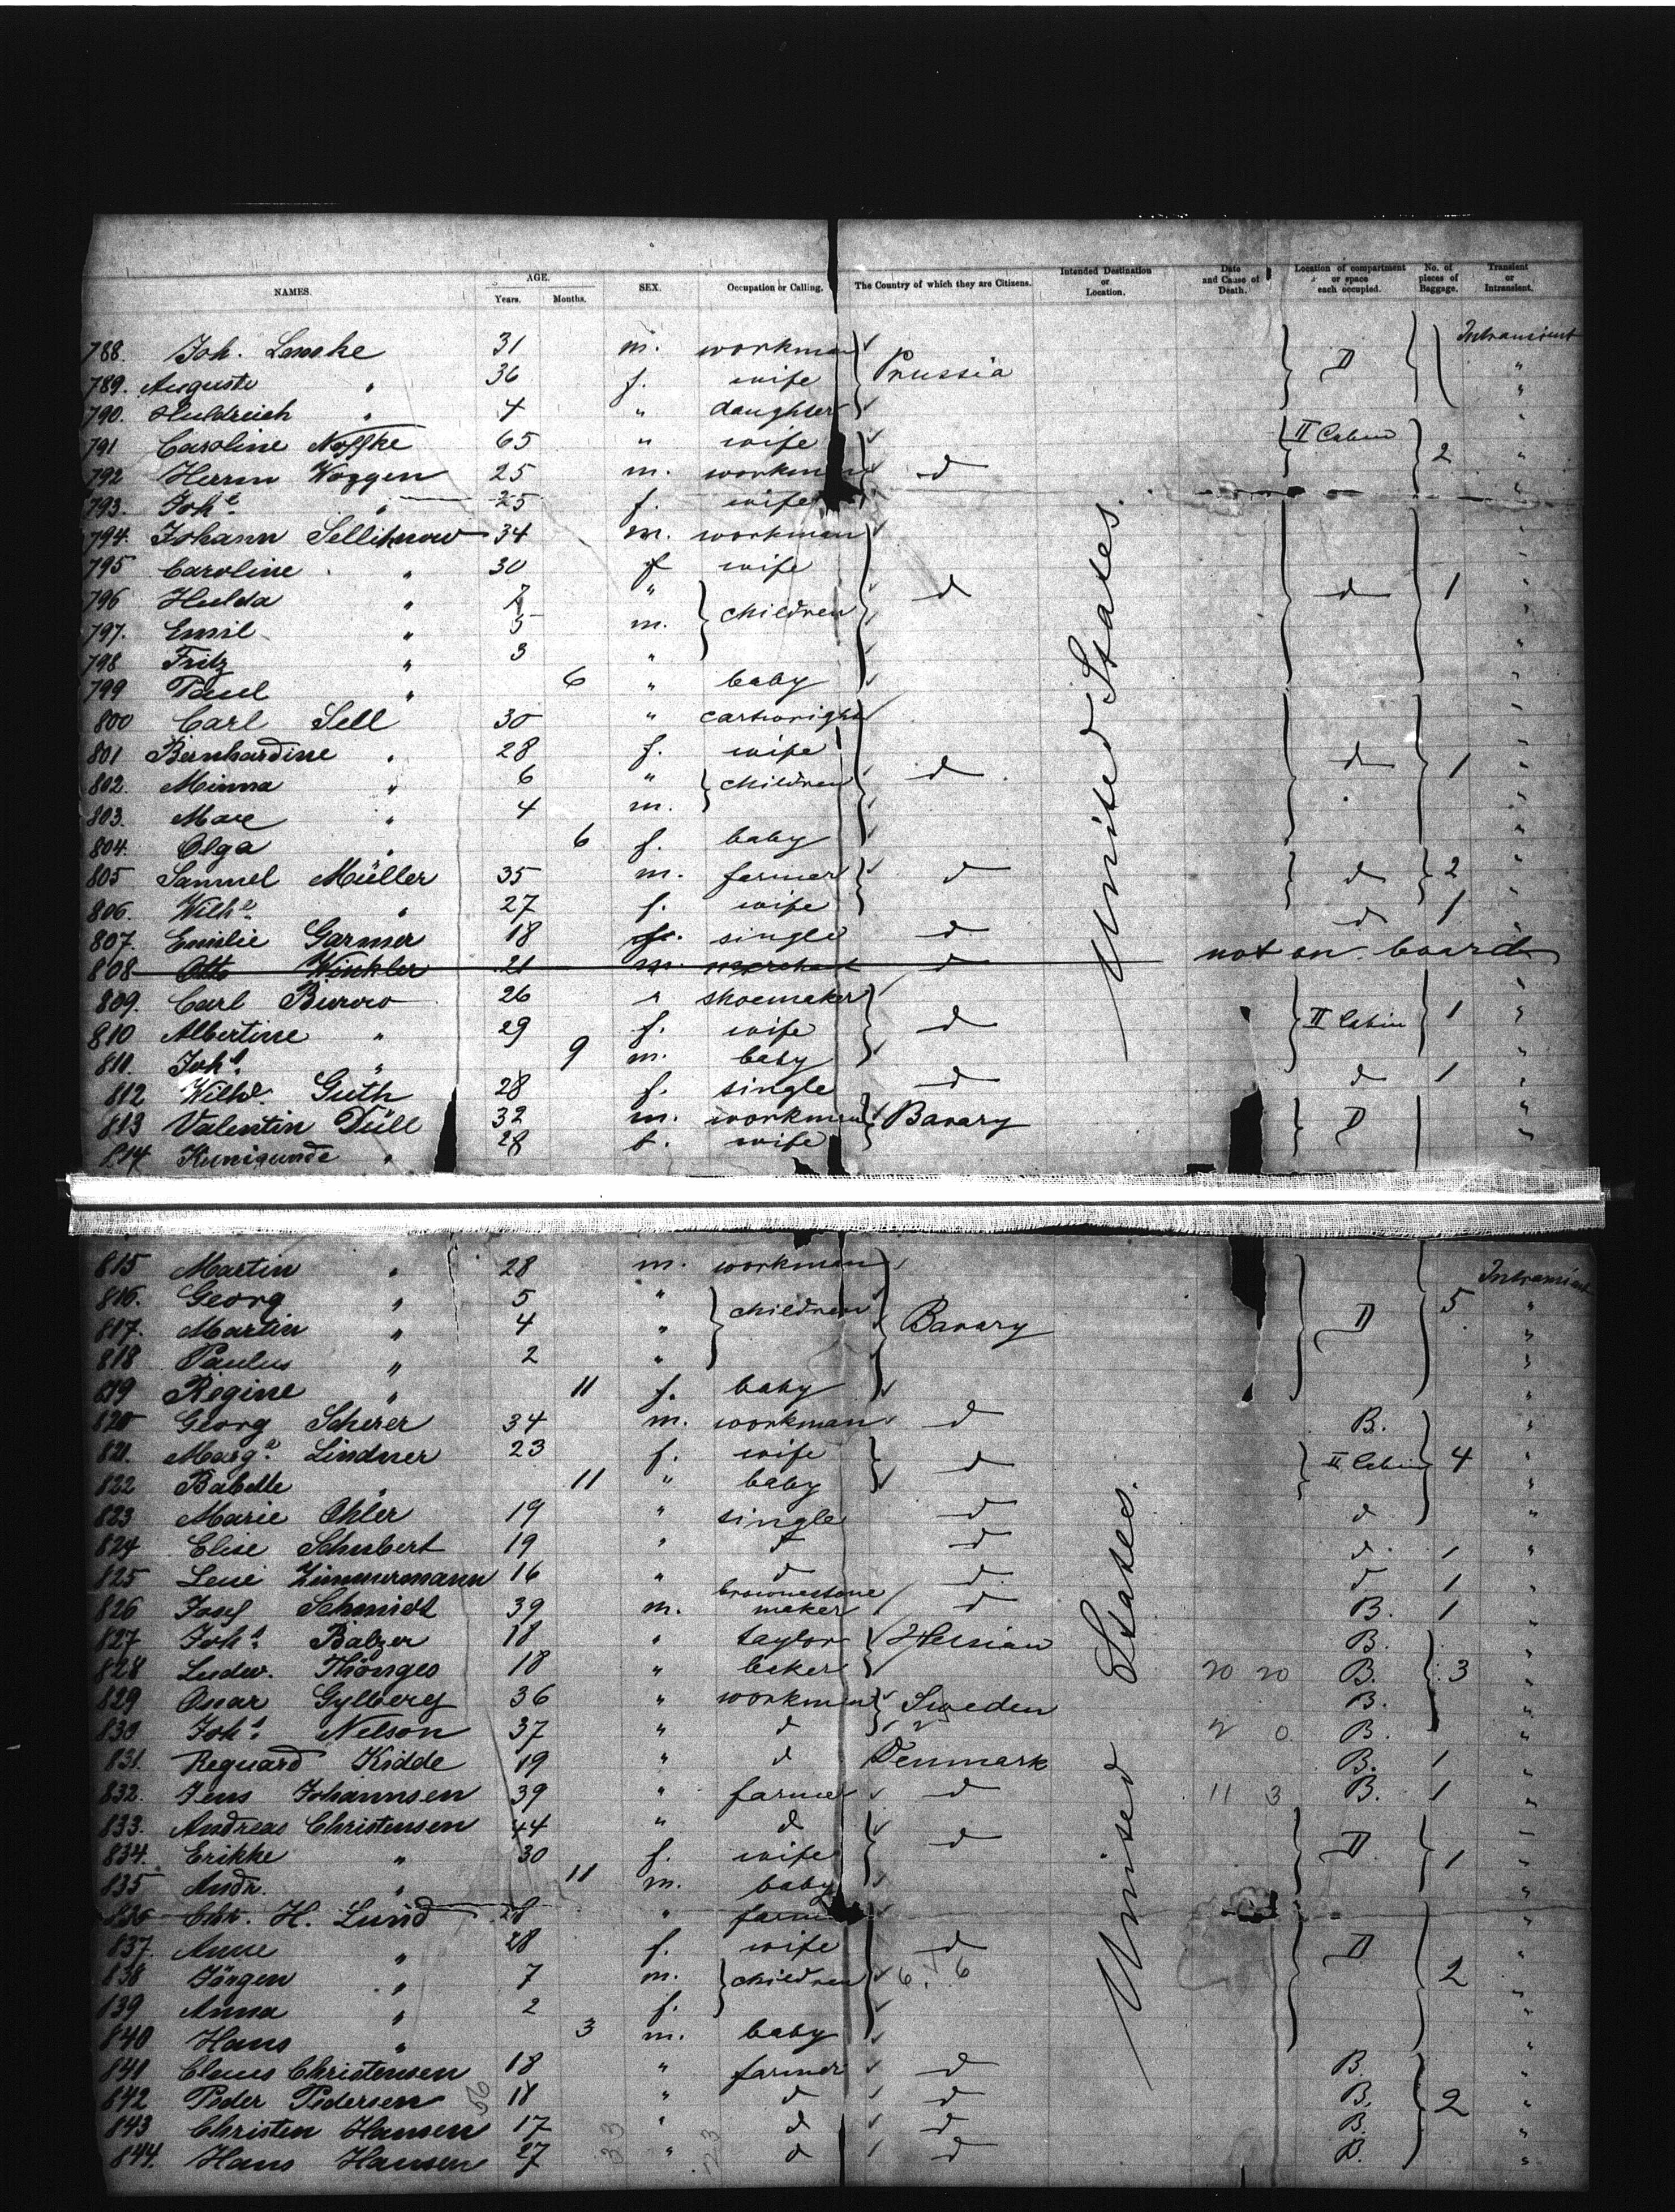 NAMES. AGE. Years. Months. SEX. Occupation or Calling. The Country of which they are Citizens. Intended Destination or Location. Date and Cause of Death. Location of compartment or space each occupied. No. of pieces of Baggage. Transient or Intransient.
788. Joh. Lemke 31 m. workman Prussia D Intransient
789. Auguste " 36 f. wife "
790. Huldreich " 4 " daughter "
791 Caroline Noffke 65 " wife II Cabin 2 "
792 Herrm Woggen 25 m. workman d "
793. Joh.e " 25 f. wife "
794. Johann Sellitnow 34 m. workman "
795 Caroline " 30 f wife "
796 Hulda " 7 " children d d 1 "
797. Emil " 5 m. "
798 Fritz " 3 " "
799 Paul " 6 " baby "
800 Carl Sell 30 " cartwright "
801 Bernhardine " 28 f. wife d "
802. Minna " 6 " children d 1 "
803. Max " 4 m. "
804. Olga " 6 f. baby "
805 Samuel Müller 35 m. farmer d d 2 "
806. Wilh.e " 27 f. wife "
807. Emilie Garmer 18 f. single d d 1 "
808 Otto Winkler 21 m. merchant d not on board
809. Carl Burow 26 " shoemaker "
810 Albertine " 29 f. wife d II Cabin 1 "
811. Joh.s " 9 m. baby "
812 Wilhe Guth 28 f. single d d 1 "
813 Valentin Düll 32 m. workman Bavary D "
814 Kunigunde " 28 f. wife
United States.
815 Martin " 28 m. workman Intransient
816. Georg " 5 " children 5 "
817. Martin " 4 " Bavary D "
818 Paulus " 2 " "
819 Regine " 11 f. baby "
820 Georg Scherer 34 m. workman d B. "
821. Marg.e Lindner 23 f. wife d II Cabin 4 "
822 Babette " 11 " baby "
823 Marie Ohler 19 " single d d "
824 Elise Schubert 19 " d d d. 1 "
825 Leni Zimmermann 16 " d d d 1 "
826 Josef Schmidt 39 m. brownestone maker d B. 1 "
827 Joh.s Balzer 18 " taylor Hessian B. "
828 Ludw. Thönges 18 " baker 20 20 B. 3 "
829 Oscar Gylberg 36 " workman Sweden B. "
830 Joh.s Nelson 37 " d 2 0 B. "
831. Reguard Kidde 19 " d Denmark B. 1 "
832. Jens Johannsen 39 " farmer d 11 3 B. 1 "
833. Andreas Christensen 44 " d "
834. Erikke " 30 f. wife d D 1 "
835 Andr. " 11 m. baby "
836 Chr. H. Lund 28 " farmer "
837. Anne " 28 f. wife d D "
838 Jörgen " 7 m. children 6. 6 2 "
839 Anna " 2 f. "
840 Hans " 3 m. baby "
841 Claus Christensen 18 " farmer d B. "
842 Peder Pedersen 18 " d d B. 2 "
843 Christen Hansen 17 " d d B. "
844. Hans Hansen 27 " d d B. "
United States.